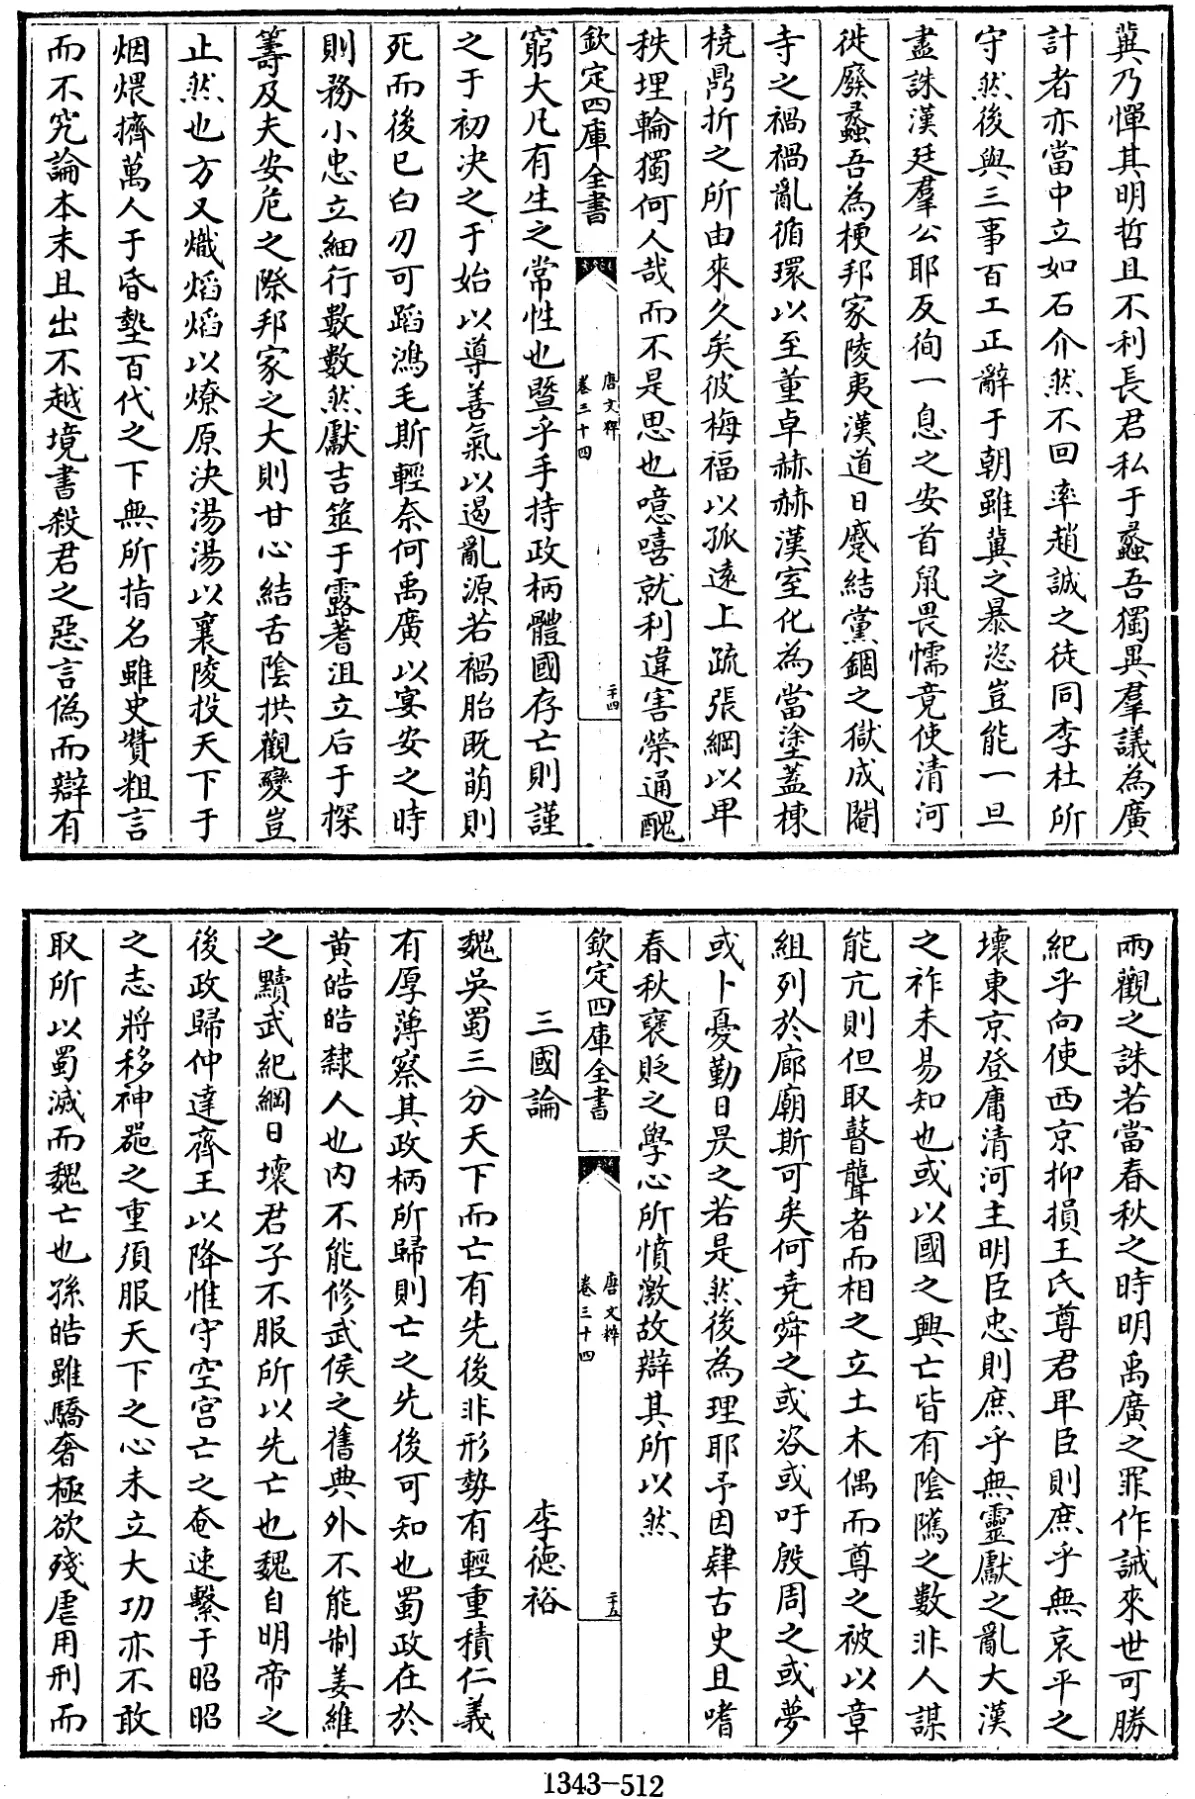 冀乃憚其明哲且不利長君私于蠡吾獨異羣議為廣
計者亦當中立如石介然不回率趙誡之徒同李杜所
守然後與三事百工正辭于朝雖冀之暴恣豈能一旦
盡誅漢廷羣公耶反徇一息之安首鼠畏懦竟使清河
徙廢蠡吾為梗邦家陵夷漢道日蹙結黨錮之獄成閹
寺之禍禍亂循環以至董卓赫赫漢室化為當塗蓋棟
橈鼎折之所由來久矣彼梅福以孤遠上疏張綱以卑
秩埋輪獨何人哉而不是思也噫嘻就利違害榮通醜
欽定四庫全書
唐文粹
卷三十四
二十四
窮大凡有生之常性也暨乎手持政柄體國存亡則謹
之于初決之于始以導善氣以遏亂源若禍胎既萌則
死而後已白刃可蹈鴻毛斯輕奈何禹廣以宴安之時
則務小忠立細行數數然獻吉筮于露蓍沮立后于探
籌及夫安危之際邦家之大則甘心結舌陰拱觀變豈
止然也方又熾熖熖以燎原決湯湯以襄陵投天下于
烟煨擠萬人于昏墊百代之下無所指名雖史贊粗言
而不究論本末且出不越境書殺君之惡言偽而辯有
兩觀之誅若當春秋之時明禹廣之罪作誡來世可勝
紀乎向使西京抑損王氏尊君卑臣則庶乎無哀平之
壞東京登庸清河主明臣忠則庶乎無靈獻之亂大漢
之祚未易知也或以國之興亡皆有陰隲之數非人謀
能亢則但取瞽聾者而相之立土木偶而尊之被以章
組列於廊廟斯可矣何堯舜之或咨或吁殷周之或夢
或卜憂勤日昃之若是然後為理耶予因肄古史且嗜
春秋褒貶之學心所憤激故辯其所以然
欽定四庫全書
唐文粹
卷三十四
二十五
三國論 李德裕
魏吳蜀三分天下而亡有先後非形勢有輕重積仁義
有厚薄察其政柄所歸則亡之先後可知也蜀政在於
黃皓皓隸人也内不能修武侯之舊典外不能制姜維
之黷武紀綱日壞君子不服所以先亡也魏自明帝之
後政歸仲達齊王以降惟守空宫亡之奄速繫于昭昭
之志將移神器之重須服天下之心未立大功亦不敢
取所以蜀滅而魏亡也孫皓雖驕奢極欲殘虐用刑而
1343-512